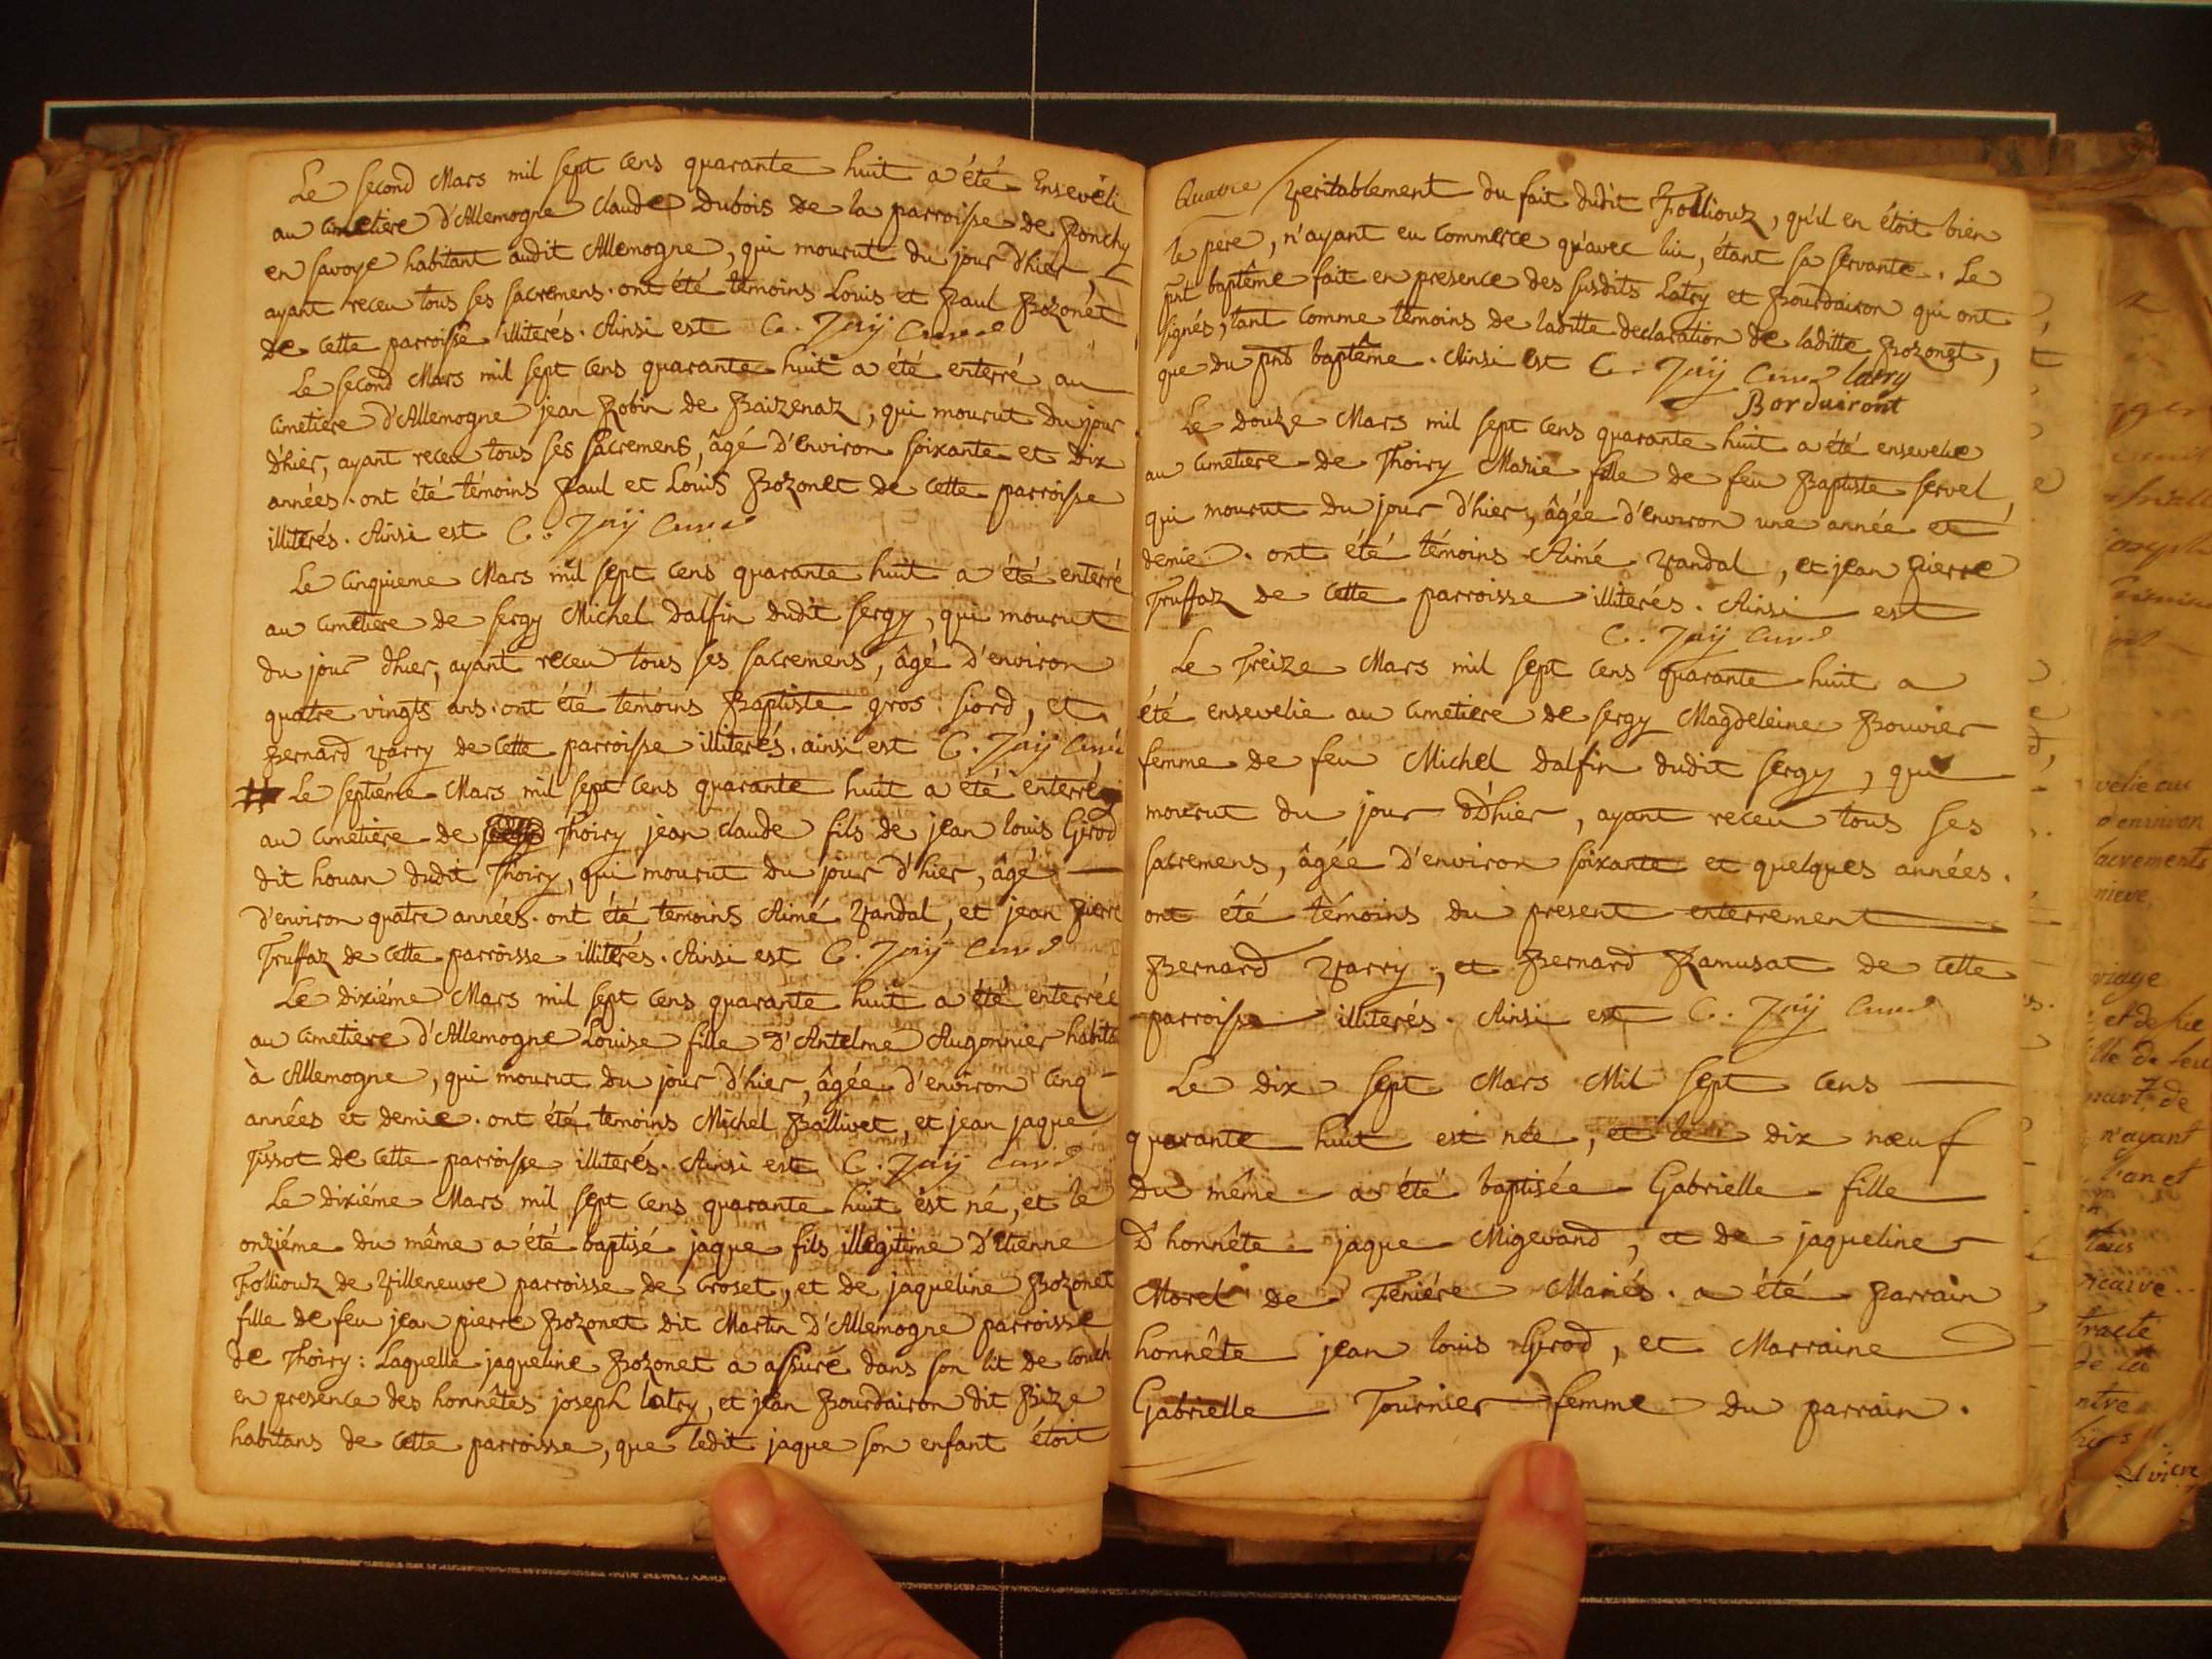 Le second Mars mil sept cens quarante huit a été Enseveli
au cimetiere d'Allemogne Claude Dubois de la parroisse de Ponchy
en savoye habitant audit Allemogne, qui mourut du jour d'hier,
ayant receu tous ses sacremens. ont été témoins Louis et Paul Bozonet
de cette parroisse illiterés. Ainsi est C. Jaÿ Curé
Le second Mars mil sept cens quarante huit a été enterré au
cimetiere d'Allemogne jean Robin de Baizenaz, qui mourut du jour
d'hier, ayant receu tous ses sacremens, âgé d'environ soixante et dix
années. ont été témoins Paul et Louis Bozonet de cette parroisse
illiterés. Ainsi est C. Jaÿ Curé
Le cinquieme Mars mil sept cens quarante huit a été enterré
au cimetiere de sergy Michel Dalfin dudit sergy, qui mourut
du jour d'hier, ayant receu tous ses sacremens, âgé d'environ
quatre vingts ans. ont été temoins Baptiste gros: siord, et
Bernard Varry de cette parroisse illiterés. ainsi est C. Jaÿ Curé
# Le septiéme Mars mil sept cens quarante huit a été enterré
au cimetiere de Thoiry jean claude fils de jean louis Girod
dit houan dudit Thoiry, qui mourut du jour d'hier, âgé
d'environ quatre années. ont été temoins Aimé Vandal, et jean pierre
Truffaz de cette parroisse illiterés. Ainsi est C. Jaÿ Curé
Le dixiéme Mars mil sept cens quarante huit a été enterrée
au cimetiere d'Allemogne Louise fille D'Antelme Augonnier habita
à Allemogne, qui mourut du jour d'hier, âgée d'environ cinq
années et demie. ont été temoins Michel Ballivet, et jean jaque
Tissot de cette parroisse illiterés. Ainsi est C. Jaÿ Curé
Le dixiéme Mars mil sept cens quarante huit est né, et le
onziéme du même a été baptisé jaque fils illegitime D'Etienne
Folliouz de Villeneuve parroisse de Croset, et de jaqueline Bozonet
fille de feu jean pierre Bozonet dit Martin D'Allemogne parroisse
de Thoiry: Laquelle jaqueline Bozonet a assuré dans son lit de couch
en presence des honnêtes joseph latry, et jean Bourdairon dit Bize
habitans de cette parroisse, que ledit jaque son enfant étoit
Quatre veritablement du fait dudit Folliouz, qu'il en étoit bien
le pere, n'ayant eu commerce qu'avec lui, étant sa servante. Le
pnt baptême fait en presence des susdits Latry et Bourdairon qui ont
signés, tant comme témoins de laditte declaration de laditte Bozonet,
que du pnt baptême. Ainsi est C. Jaÿ Curé latry
Borduiront
Le douze Mars mil sept cens quarante huit a été ensevelie
au cimetiere de Thoiry Marie fille de feu Baptiste servel,
qui mourut du jour d'hier, âgée d'environ une année et
demie. ont été témoins Aimé Vandal, et jean Pierre
Truffaz de cette parroisse illiterés. Ainsi est
C. Jaÿ Curé
Le Treize Mars mil sept cens quarante huit a
été ensevelie au cimetiere de sergy Magdeleine Bouvier
femme de feu Michel Dalfin dudit sergy, qui
mourut du jour d'hier, ayant receu tous ses
sacremens, âgée d'environ soixante et quelques années.
ont été témoins du present enterrement
Bernard Varry, et Bernard Ramusat de cette
parroisse illiterés. Ainsi est C. Jaÿ Curé
Le dix sept Mars Mil sept cens
quarante huit est née, et le dix nœuf
du même a été baptisée Gabrielle fille
D'honnête jaque Migevand, et de jaqueline
Morel de Feniére Mariés. a été Parrain
honnête jean louis Girod, et Marraine
Gabrielle Tournier femme du parrain.